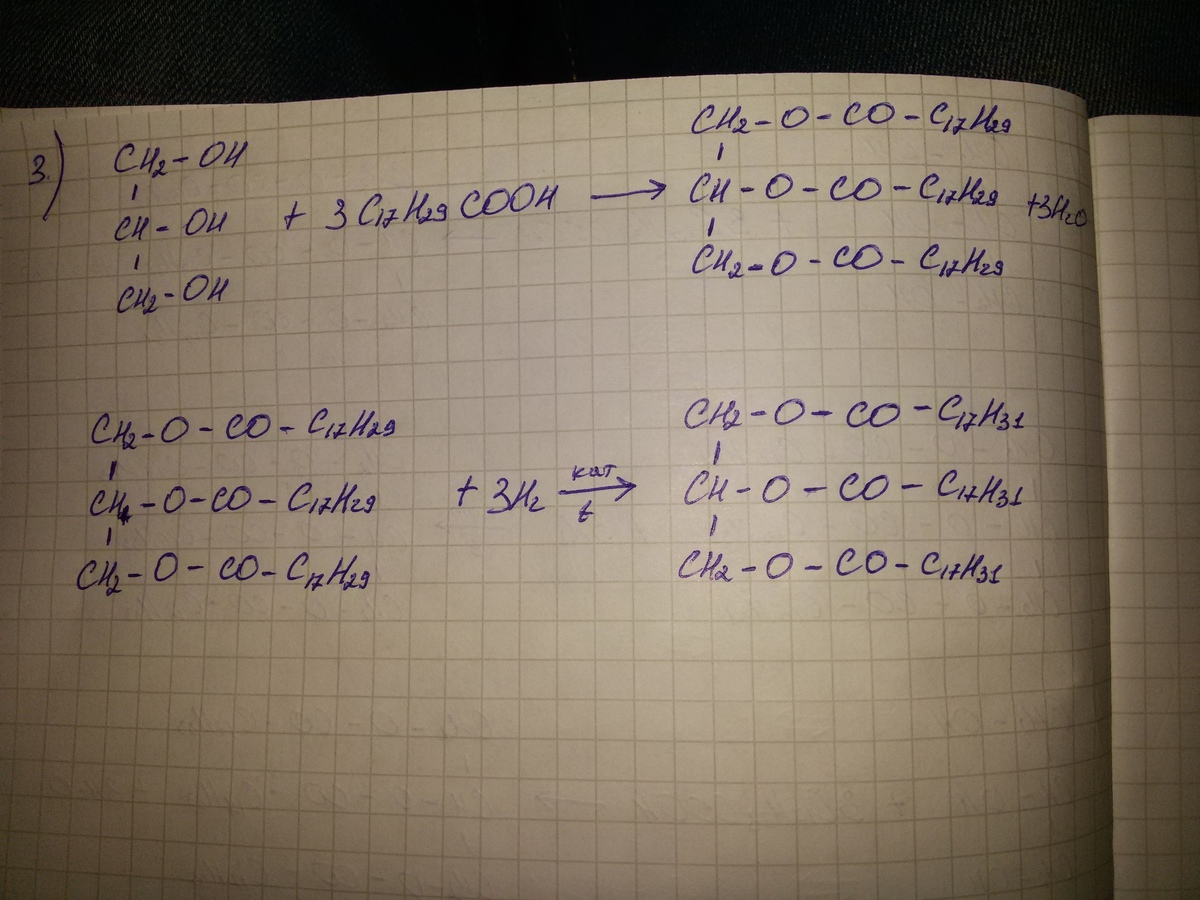 3.)
CH2 - OH
CH - OH
CH2 - OH
+ 3 C17H29 COOH →
CH2 - O - CO - C17H29
CH - O - CO - C17H29
CH2 - O - CO - C17H29
+3H2O
CH2 - O - CO - C17H29
CH - O - CO - C17H29
CH2 - O - CO - C17H29
+ 3H2
кат
t
→
CH2 - O - CO - C17H31
CH - O - CO - C17H31
CH2 - O - CO - C17H31